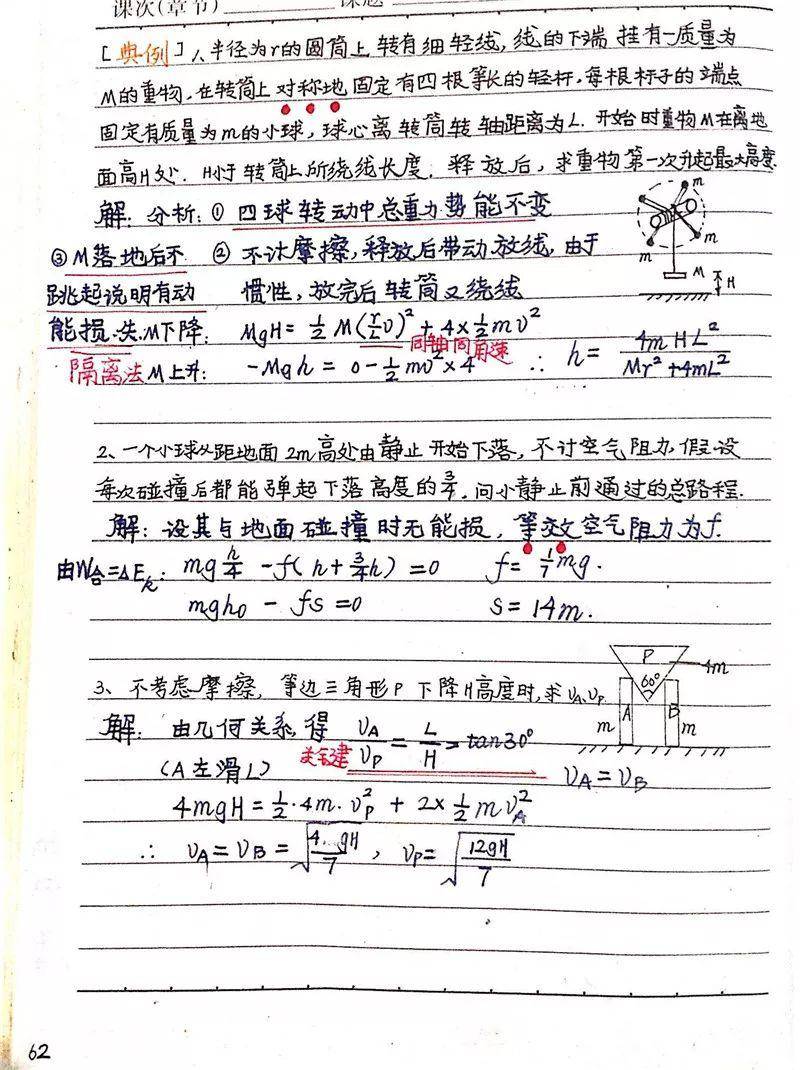 课次(章节) 课题
[典例] 1、半径为r的圆筒上转有细轻线,线的下端挂有一质量为
M的重物,在转筒上对称地固定有四根等长的轻杆,每根杆子的端点
固定有质量为m的小球,球心离转筒转轴距离为L.开始时重物M在离地
面高H处.H小于转筒上所绕线长度.释放后,求重物第一次升起最大高度.
解:分析:① 四球转动中总重力势能不变
③ M落地后不 ② 不计摩擦,释放后带动放线,由于
跳起说明有动 惯性,放完后转筒又绕线
能损失. M下降: MgH = 1/2 M(r/L υ)² + 4×1/2 mυ²
同轴同角速
隔离法 M上升: -Mgh = 0 - 1/2 mυ²×4 ∴ h = 4mHL²/(Mr²+4mL²)
m
m
m
M
H
2、一个小球从距地面2m高处由静止开始下落,不计空气阻力,假设
每次碰撞后都能弹起下落高度的3/4,问小静止前通过的总路程.
解:设其与地面碰撞时无能损,等效空气阻力为f.
由W合=ΔEk: mg h/4 - f(h+3/4h) = 0 f = 1/7 mg.
mgh₀ - fs = 0 s = 14m.
P
4m
60°
A
B
m
m
3、不考虑摩擦,等边三角形P下降H高度时,求υA、υP.
解: 由几何关系,得 υA/υP = L/H = tan30°
关键
(A左滑L) υA = υB
4mgH = 1/2·4m·υP² + 2×1/2 mυA²
∴ υA = υB = √(4 gH/7) , υP = √(12gH/7)
62